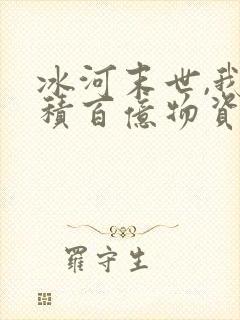 冰河末世,我
積百億物資
羅守生